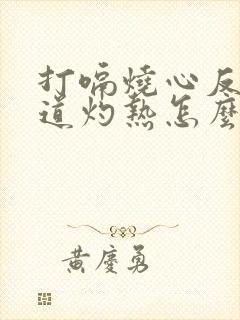 打嗝燒心反
道灼熱怎麼
黃慶勇